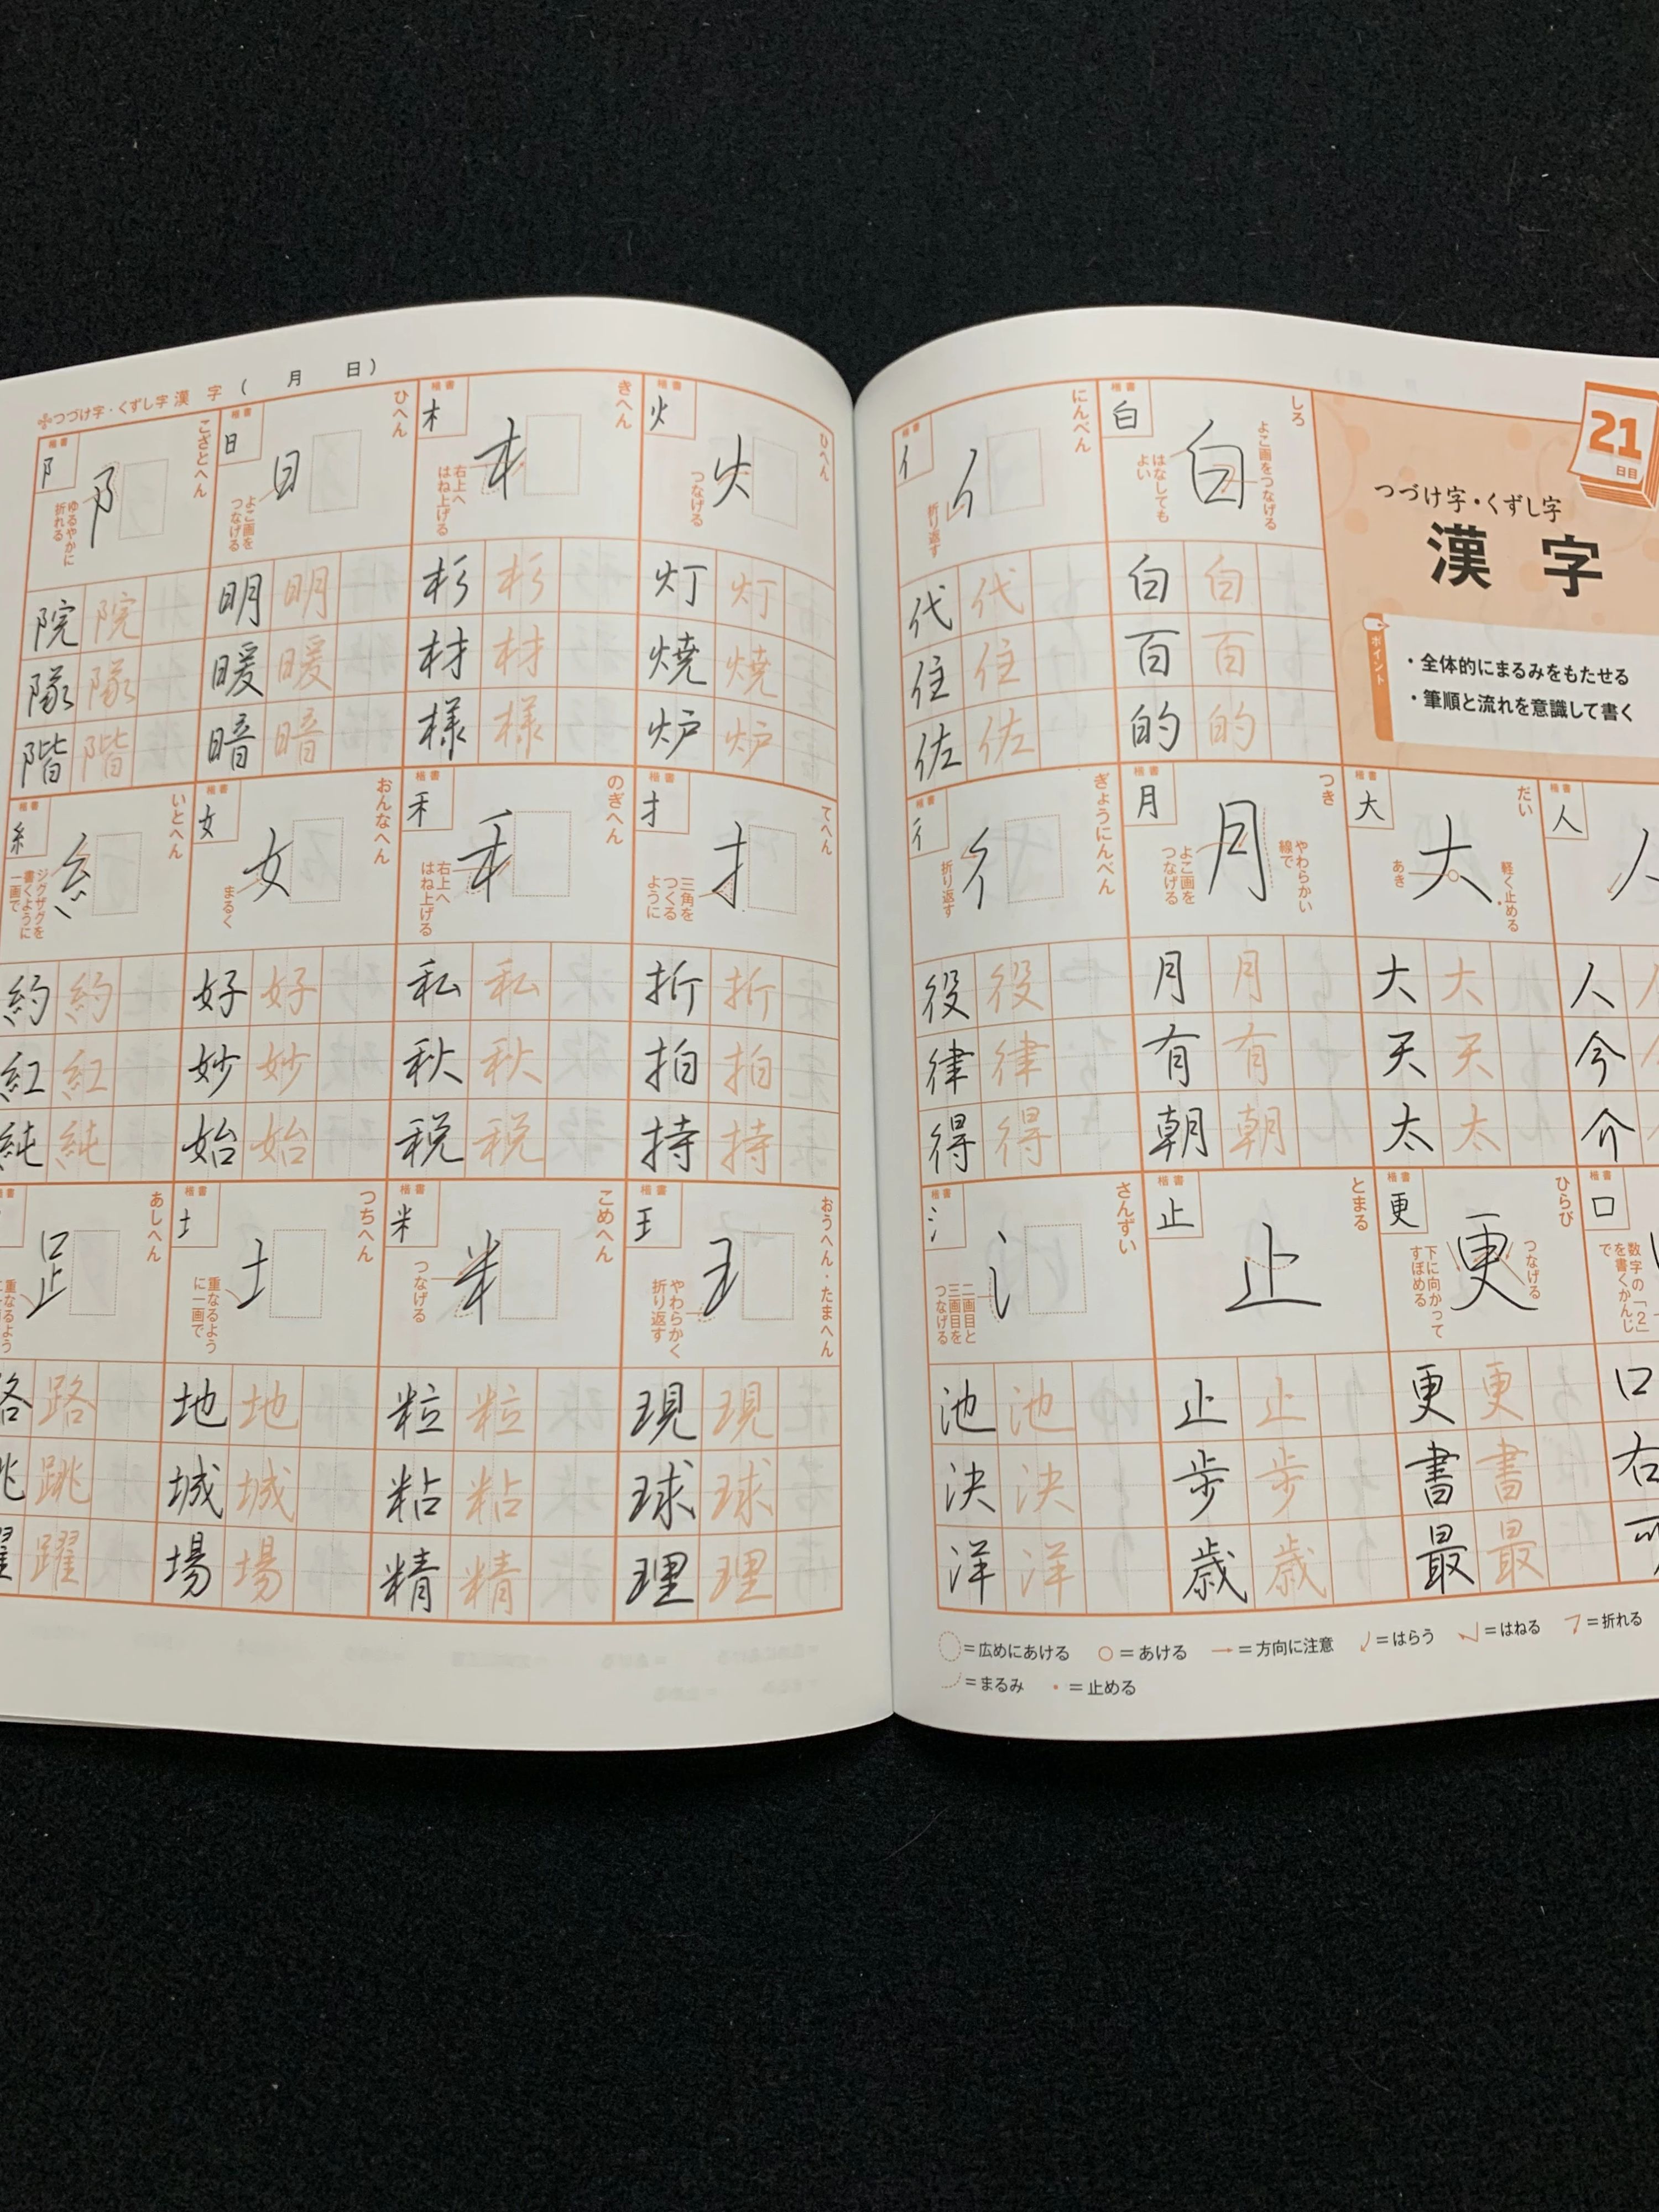 21
日目
つづけ字・くずし字
漢 字
ポイント
・全体的にまるみをもたせる
・筆順と流れを意識して書く
しろ
楷書
白
白
よこ画をつなげる
はなしても
よい
白 白
百 百
的 的
にんべん
楷書
亻
亻
折り返す
代 代
住 住
佐 佐
楷書
人
人
人
今
介
だい
楷書
大
大
軽く止める
あき
大 大
天 天
太 太
つき
楷書
月
月
やわらかい
線で
よこ画を
つなげる
月 月
有 有
朝 朝
ぎょうにんべん
楷書
彳
彳
折り返す
役 役
律 律
得 得
楷書
口
数字の「2」
を書くかんじ
で
口
右
ひらび
楷書
更
更
つなげる
下に向かって
すぼめる
更 更
書 書
最 最
とまる
楷書
止
止
止 止
歩 歩
歳 歳
さんずい
楷書
氵
氵
二画目と
三画目を
つなげる
池 池
決 決
洋 洋
=広めにあける
=あける
=方向に注意
=はらう
=はねる
=折れる
=まるみ
=止める
つづけ字・くずし字 漢 字 ( 月 日)
ひへん
楷書
火
火
つなげる
灯 灯
焼 焼
炉 炉
きへん
楷書
木
木
右上へ
はね上げる
杉 杉
材 材
様 様
ひへん
楷書
日
日
よこ画を
つなげる
明 明
暖 暖
暗 暗
こざとへん
楷書
阝
阝
ゆるやかに
折れる
院 院
隊 隊
階 階
てへん
楷書
扌
扌
三角を
つくる
ように
折 折
拍 拍
持 持
のぎへん
楷書
禾
禾
右上へ
はね上げる
私 私
秋 秋
税 税
おんなへん
楷書
女
女
まるく
好 好
妙 妙
始 始
いとへん
楷書
糸
糸
ジグザグを
書くように
一画で
約 約
紅 紅
純 純
おうへん・たまへん
楷書
王
王
やわらかく
折り返す
現 現
球 球
理 理
こめへん
楷書
米
米
つなげる
粒 粒
粘 粘
精 精
つちへん
楷書
土
土
重なるよう
に一画で
地 地
城 城
場 場
あしへん
楷書
𧾷
重なるよう
に一画で
路 路
跳 跳
躍 躍